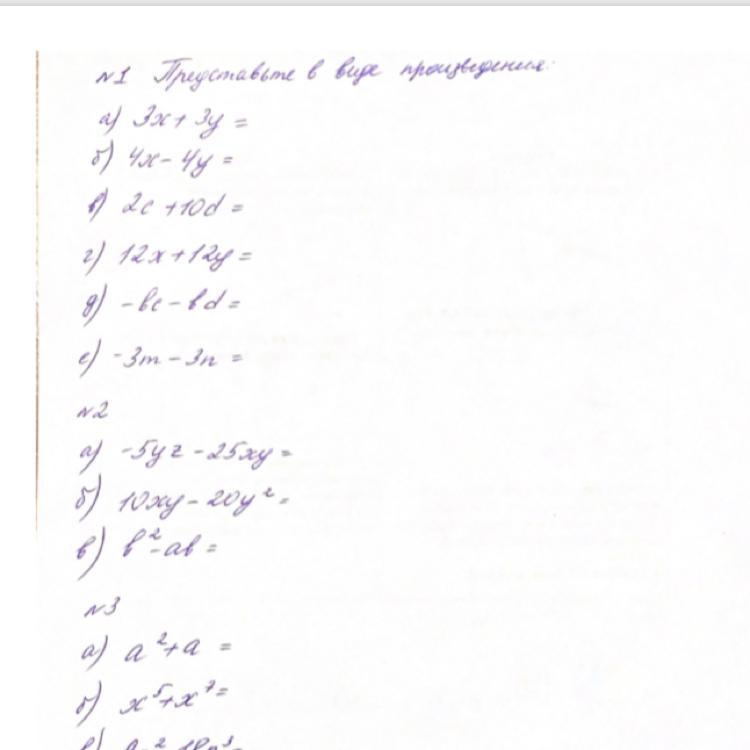 №1 Представьте в виде произведения:
а) 3x + 3y =
б) 4x - 4y =
в) 2c + 10d =
г) 12x + 12y =
д) -bc - bd =
е) -3m - 3n =
№2
а) -5yz - 25xy =
б) 10xy - 20y² =
в) b² - ab =
№3
а) a² + a =
б) x⁵ + x⁷ =